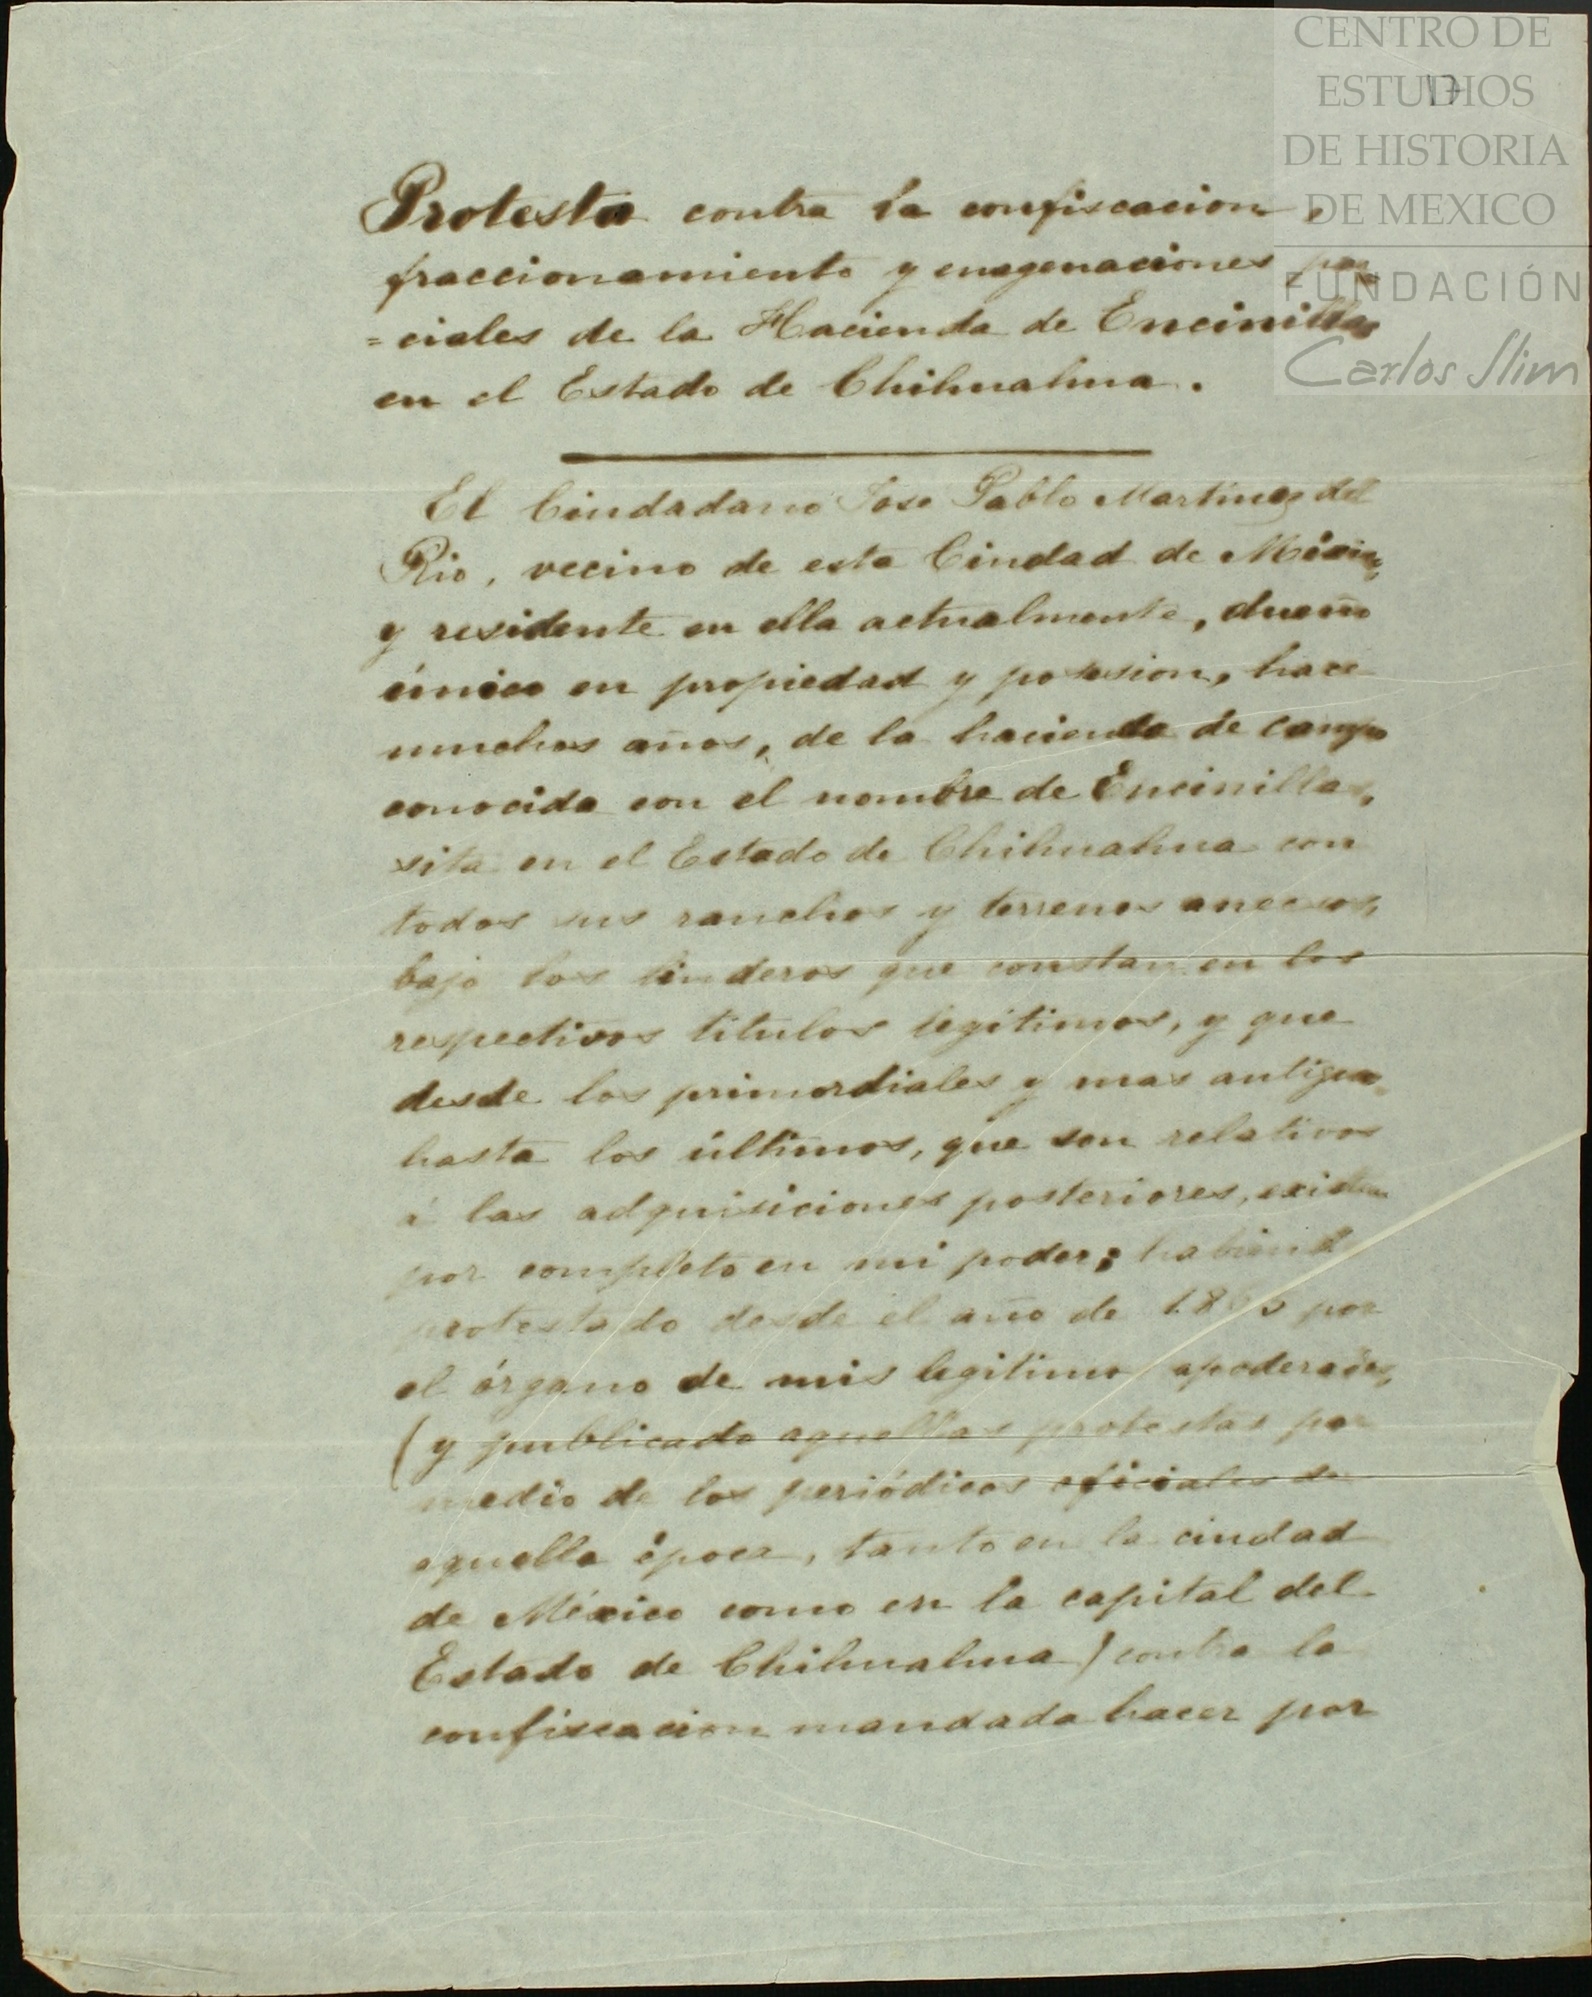 CENTRO DE
ESTUDIOS
DE HISTORIA
DE MEXICO
FUNDACIÓN
Carlos Slim
17
Protesta contra la confiscacion,
fraccionamiento y enagenaciones par
=ciales de la Hacienda de Encinillas
en el Estado de Chihuahua.
El Ciudadano Jose Pablo Martinez del
Rio, vecino de esta Ciudad de Mexico,
y residente en ella actualmente, dueño
único en propiedad y posesion, hace
muchos años, de la hacienda de campo
conocida con el nombre de Encinillas,
sita en el Estado de Chihuahua con
todos sus ranchos y terrenos anecsos,
bajo los linderos que constan en los
respectivos títulos legítimos, y que
desde los primordiales y mas antiguos
hasta los últimos, que son relativos
á las adquisiciones posteriores, existen
por completo en mi poder; habiendo
protestado desde el año de 1865 por
el órgano de mis legitimos apoderados,
(y publicado aquellas protestas por
medio de los periódicos oficiales de
aquella época, tanto en la ciudad
de México como en la capital del
Estado de Chihuahua) contra la
confiscacion mandada hacer por